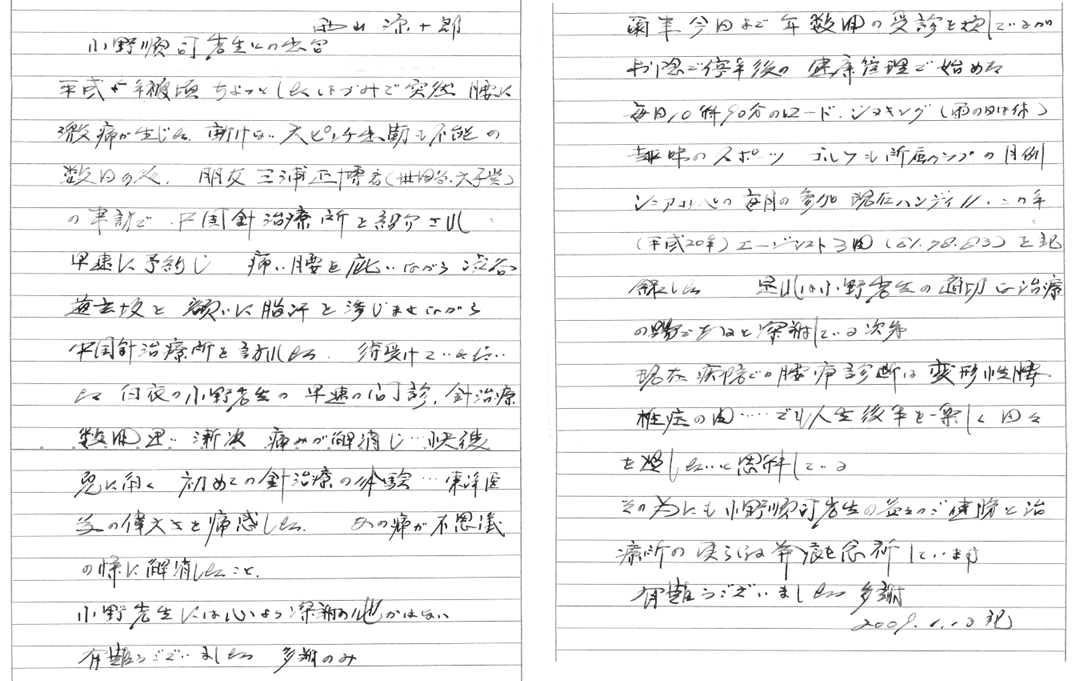 西山 源十郎
小野順司先生との出会
平成十年頃 ちょっとしたはずみで突然 腰に
激痛が生じた 動けない 大ピンチ 出勤も不能の
数日の後、朋友 三浦正博君(世田谷、大子堂)
の車訪で 中国針治療所を紹介され
早速に予約し 痛い腰を庇いながら 渋谷
道玄坂を 額に脂汗を滲じませながら
中国針治療所を訪ねした 待受けていただい
た 白衣の小野先生の 早速の問診、針治療
数回通い 漸次 痛みが解消し…快復
に向く 初めての針治療の体験…東洋医
学の偉大さを痛感した あの痛が不思議
の様に解消したこと、
小野先生には心より深謝の他かはない
有難うございました 多謝のみ
以来 今日まで 年数回の受診を続しているが
お陰で停年後の 健康管理で始めた
毎日10粁90分のロード・ジョギング(雨の日は休)
趣味のスポーツ ゴルフも所属クラブの月例
シニア 毎月の参加 現在ハンディ11、この年
(平成20年)エージシュト3回(81.78.83)を記
録した 是れは小野先生の適切な治療
の賜であると深謝している次第
現在 病院での腰痛診断は変形性腰
椎症の由……でも人生後半を楽しく日々
を過したいと思料している
その為にも小野順司先生の益々のご健勝と治
療所の更らなる 発展を念祈しています
有難うございました 多謝
2009.1.10 記